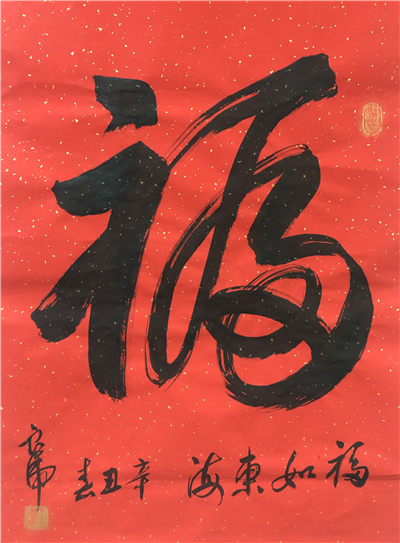 福
福如東海 辛丑春